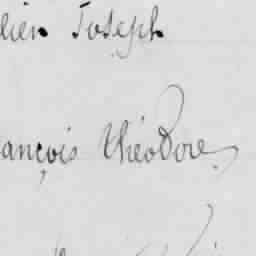 lien Joseph
ançois théodore